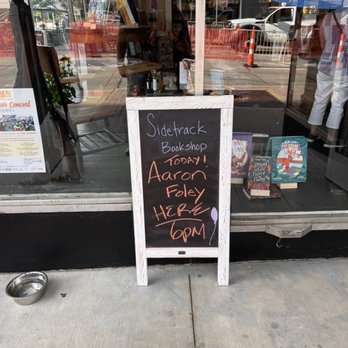 Sidetrack
Bookshop
TODAY!
Aaron
Foley
HERE
6PM
Concert